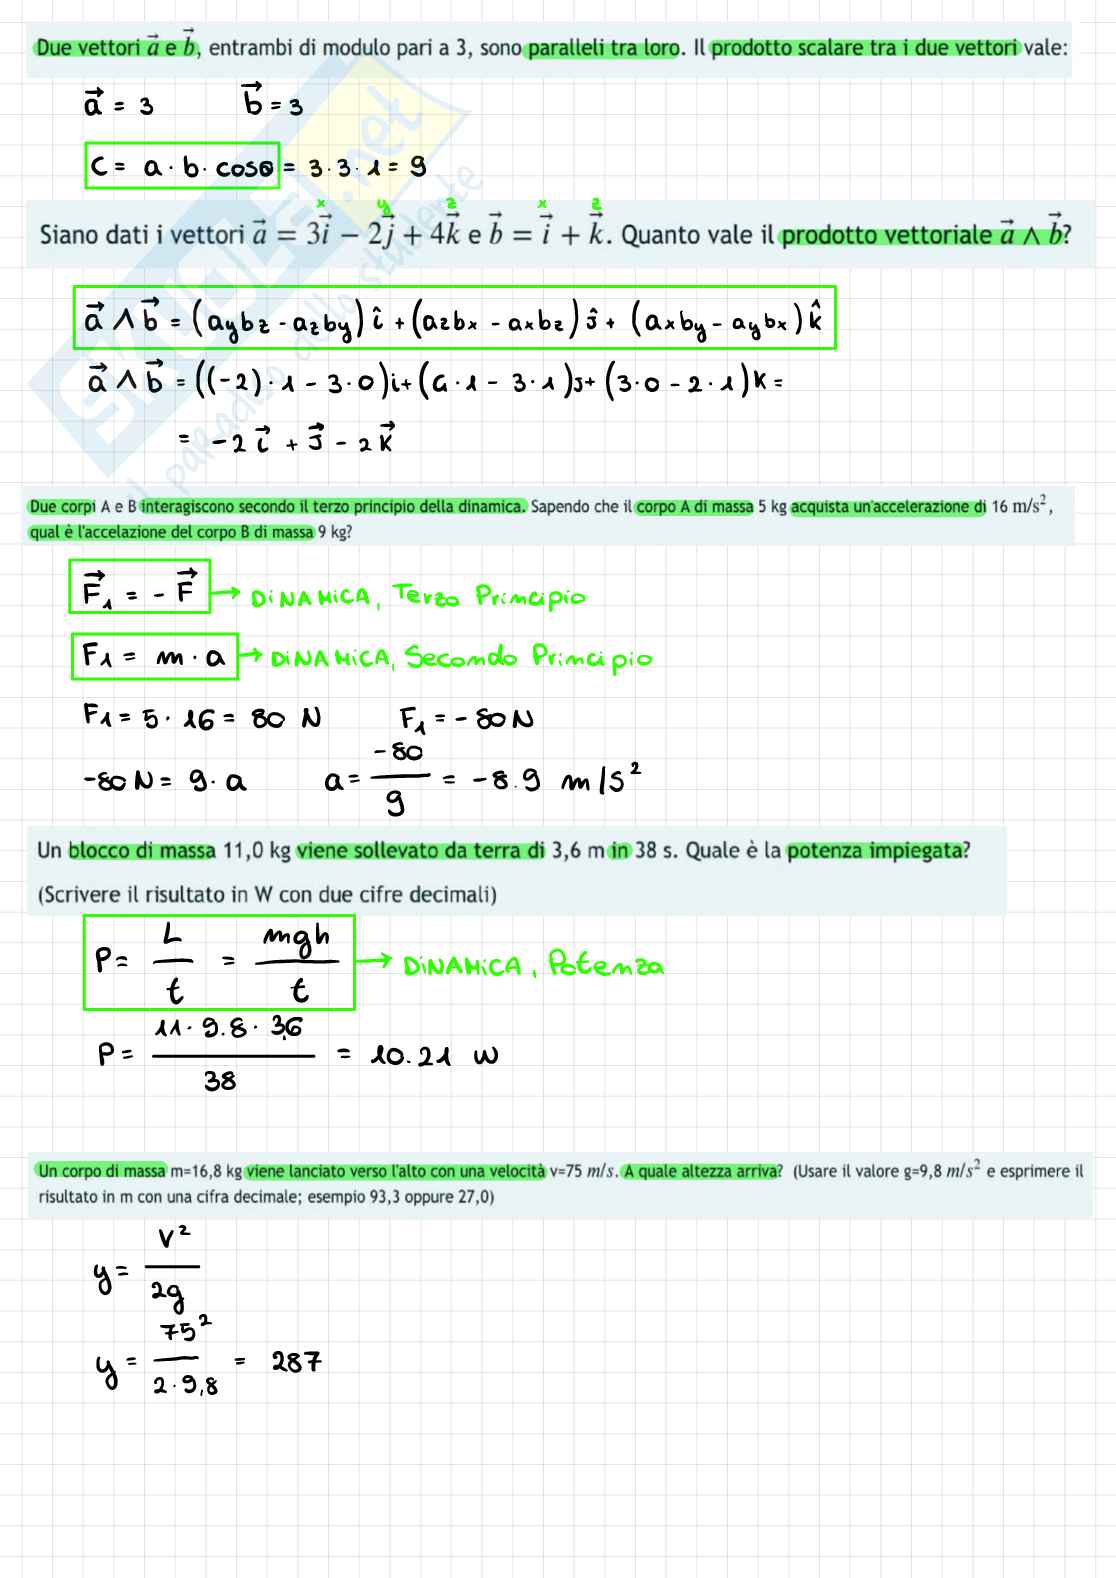 Due vettori a⃗ e b⃗, entrambi di modulo pari a 3, sono paralleli tra loro. Il prodotto scalare tra i due vettori vale:
a⃗ = 3 b⃗ = 3
C = a · b · cosθ = 3 · 3 · 1 = 9
x y z x z
Siano dati i vettori a⃗ = 3i⃗ − 2j⃗ + 4k⃗ e b⃗ = i⃗ + k⃗. Quanto vale il prodotto vettoriale a⃗ ∧ b⃗?
a⃗ ∧ b⃗ = (aybz - azby) î + (azbx - axbz) ĵ + (axby - aybx) k̂
a⃗ ∧ b⃗ = ((-2) · 1 - 3 · 0)i + (4 · 1 - 3 · 1)j + (3 · 0 - 2 · 1)k =
= -2 i⃗ + j⃗ - 2 k⃗
Due corpi A e B interagiscono secondo il terzo principio della dinamica. Sapendo che il corpo A di massa 5 kg acquista un'accelerazione di 16 m/s²,
qual è l'accelazione del corpo B di massa 9 kg?
F⃗₁ = - F⃗ → DiNAMiCA, Terzo Principio
F₁ = m · a → DiNAMiCA, Secondo Principio
F₁ = 5 · 16 = 80 N F₁ = - 80 N
-80 N = 9 · a a = -80 / 9 = -8.9 m/s²
Un blocco di massa 11,0 kg viene sollevato da terra di 3,6 m in 38 s. Quale è la potenza impiegata?
(Scrivere il risultato in W con due cifre decimali)
P = L / t = mgh / t → DiNAMiCA, Potenza
P = 11 · 9.8 · 3,6 / 38 = 10.21 W
Un corpo di massa m=16,8 kg viene lanciato verso l'alto con una velocità v=75 m/s. A quale altezza arriva? (Usare il valore g=9,8 m/s² e esprimere il
risultato in m con una cifra decimale; esempio 93,3 oppure 27,0)
y = v² / 2g
y = 75² / 2 · 9,8 = 287
SKUOLA.net
il paradiso dello studente